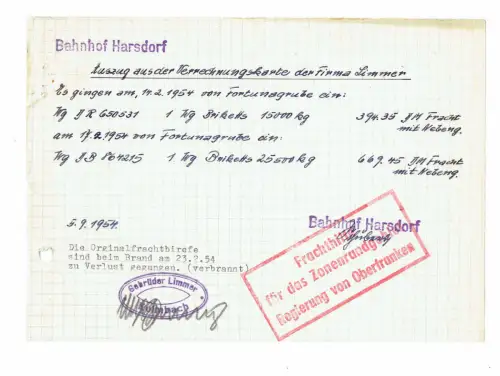 Bahnhof Harsdorf
Auszug aus der Verrechnungskarte der Firma Limmer
Es gingen am, 14.2.1954 von Fortunagrube ein:
Wg DR 650531 1 Wg Briketts 15000 kg 394.35 DM Fracht
mit Nebeng.
am 17.2.1954 von Fortunagrube ein:
Wg DB 864215 1 Wg Briketts 25500 kg 669.45 DM Fracht
mit Nebeng.
5.9.1954.
Bahnhof Harsdorf
Die Orginalfrachtbirefe
sind beim Brand am 23.2.54
zu Verlust gegangen. (verbrannt)
Gebrüder Limmer
Kulmbach
Frachthilfe
für das Zonenrandgebiet
Regierung von Oberfranken